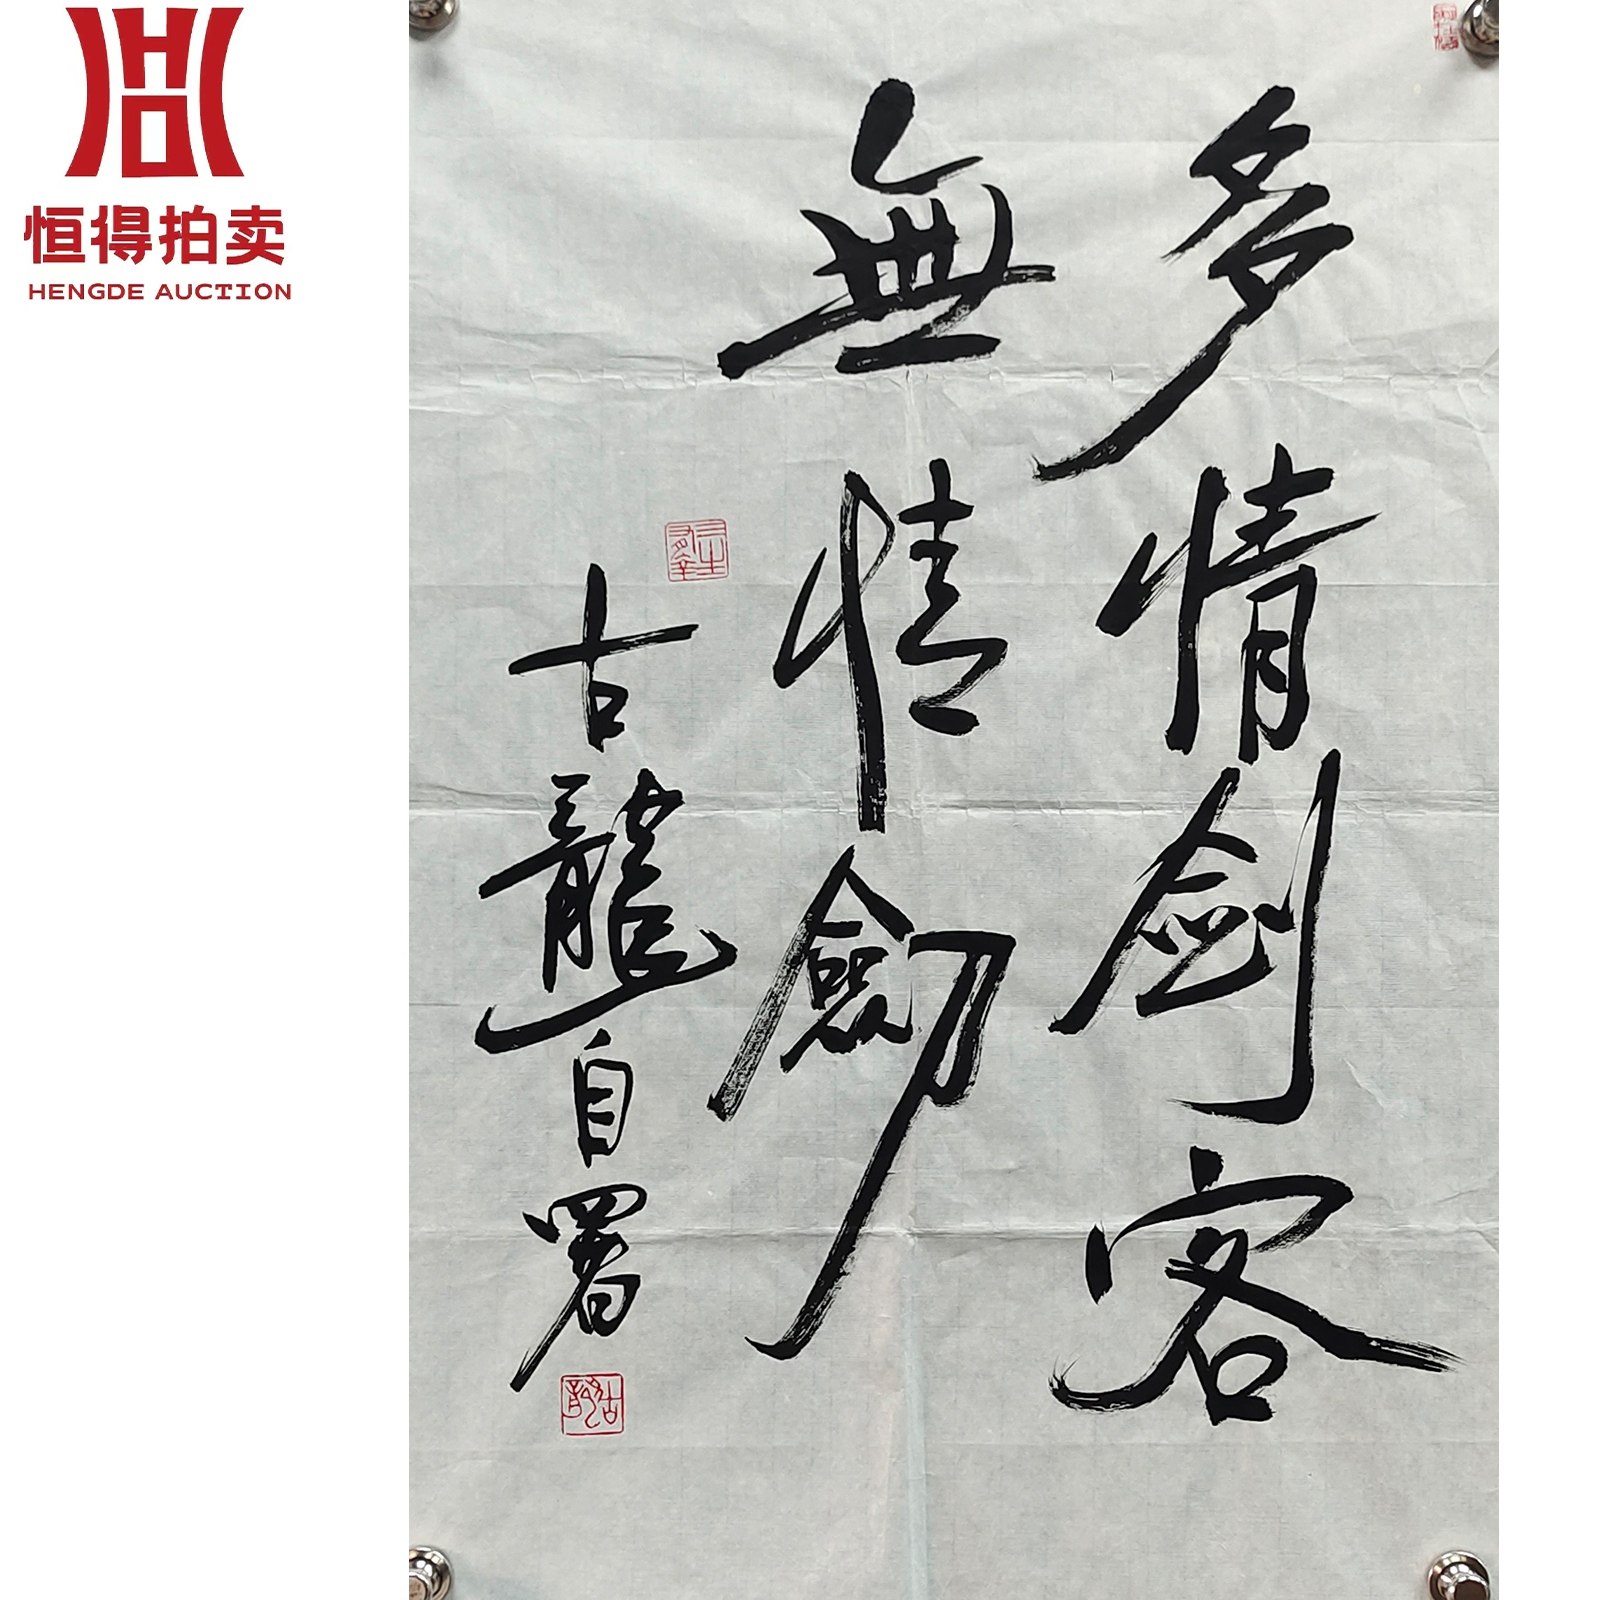 恒得拍卖
HENGDE AUCTION
多情剑客
無情劒
古龍自署